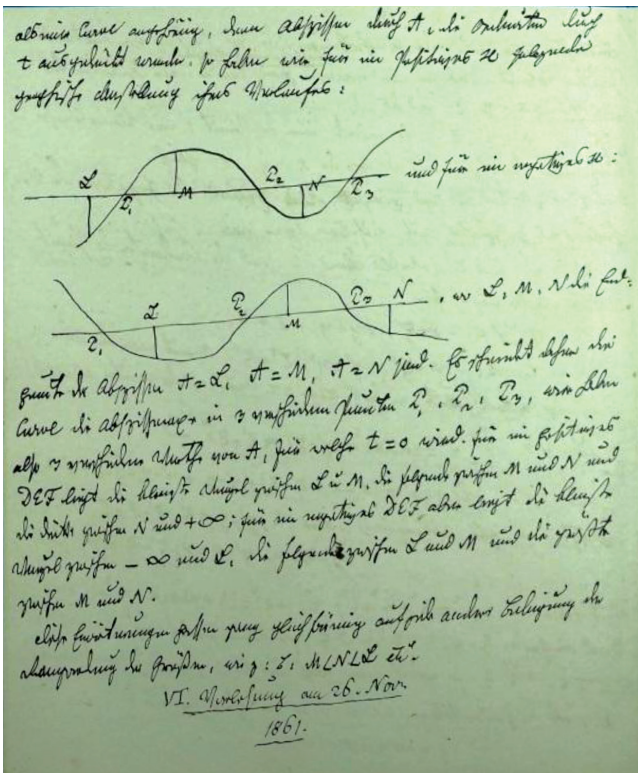 als eine Curve angehörig, deren Abszissen durch A, die Ordinaten durch
t ausgedrückt werden, so haben wir für ein positives ϰ folgende
graphische Darstellung ihres Verlaufes:
L P₁ M P₂ N P₃ und für ein negatives ϰ:
P₁ L P₂ M P₃ N, wo L, M, N die End-
punkte der Abszissen A=L, A=M, A=N sind. Es schneidet daher die
Curve die Abszissenaxe in 3 verschiedenen Punkten P₁, P₂, P₃, wir haben
also 3 verschiedene Werthe von A, für welche t=0 wird. Für ein positives
DEF liegt die kleinste Wurzel zwischen L u M, die folgende zwischen M und N und
die dritte zwischen N und +∞; für ein negatives DEF aber liegt die kleinste
Wurzel zwischen -∞ und L, die folgende zwischen L und M und die größte
zwischen M und N.
Diese Erörterungen passen ganz gleichförmig auf jede andere Bedingung der
Rangordnung der Größen, wie M<N<L etc.
VI. Vorlesung am 26. Nov.
1861.